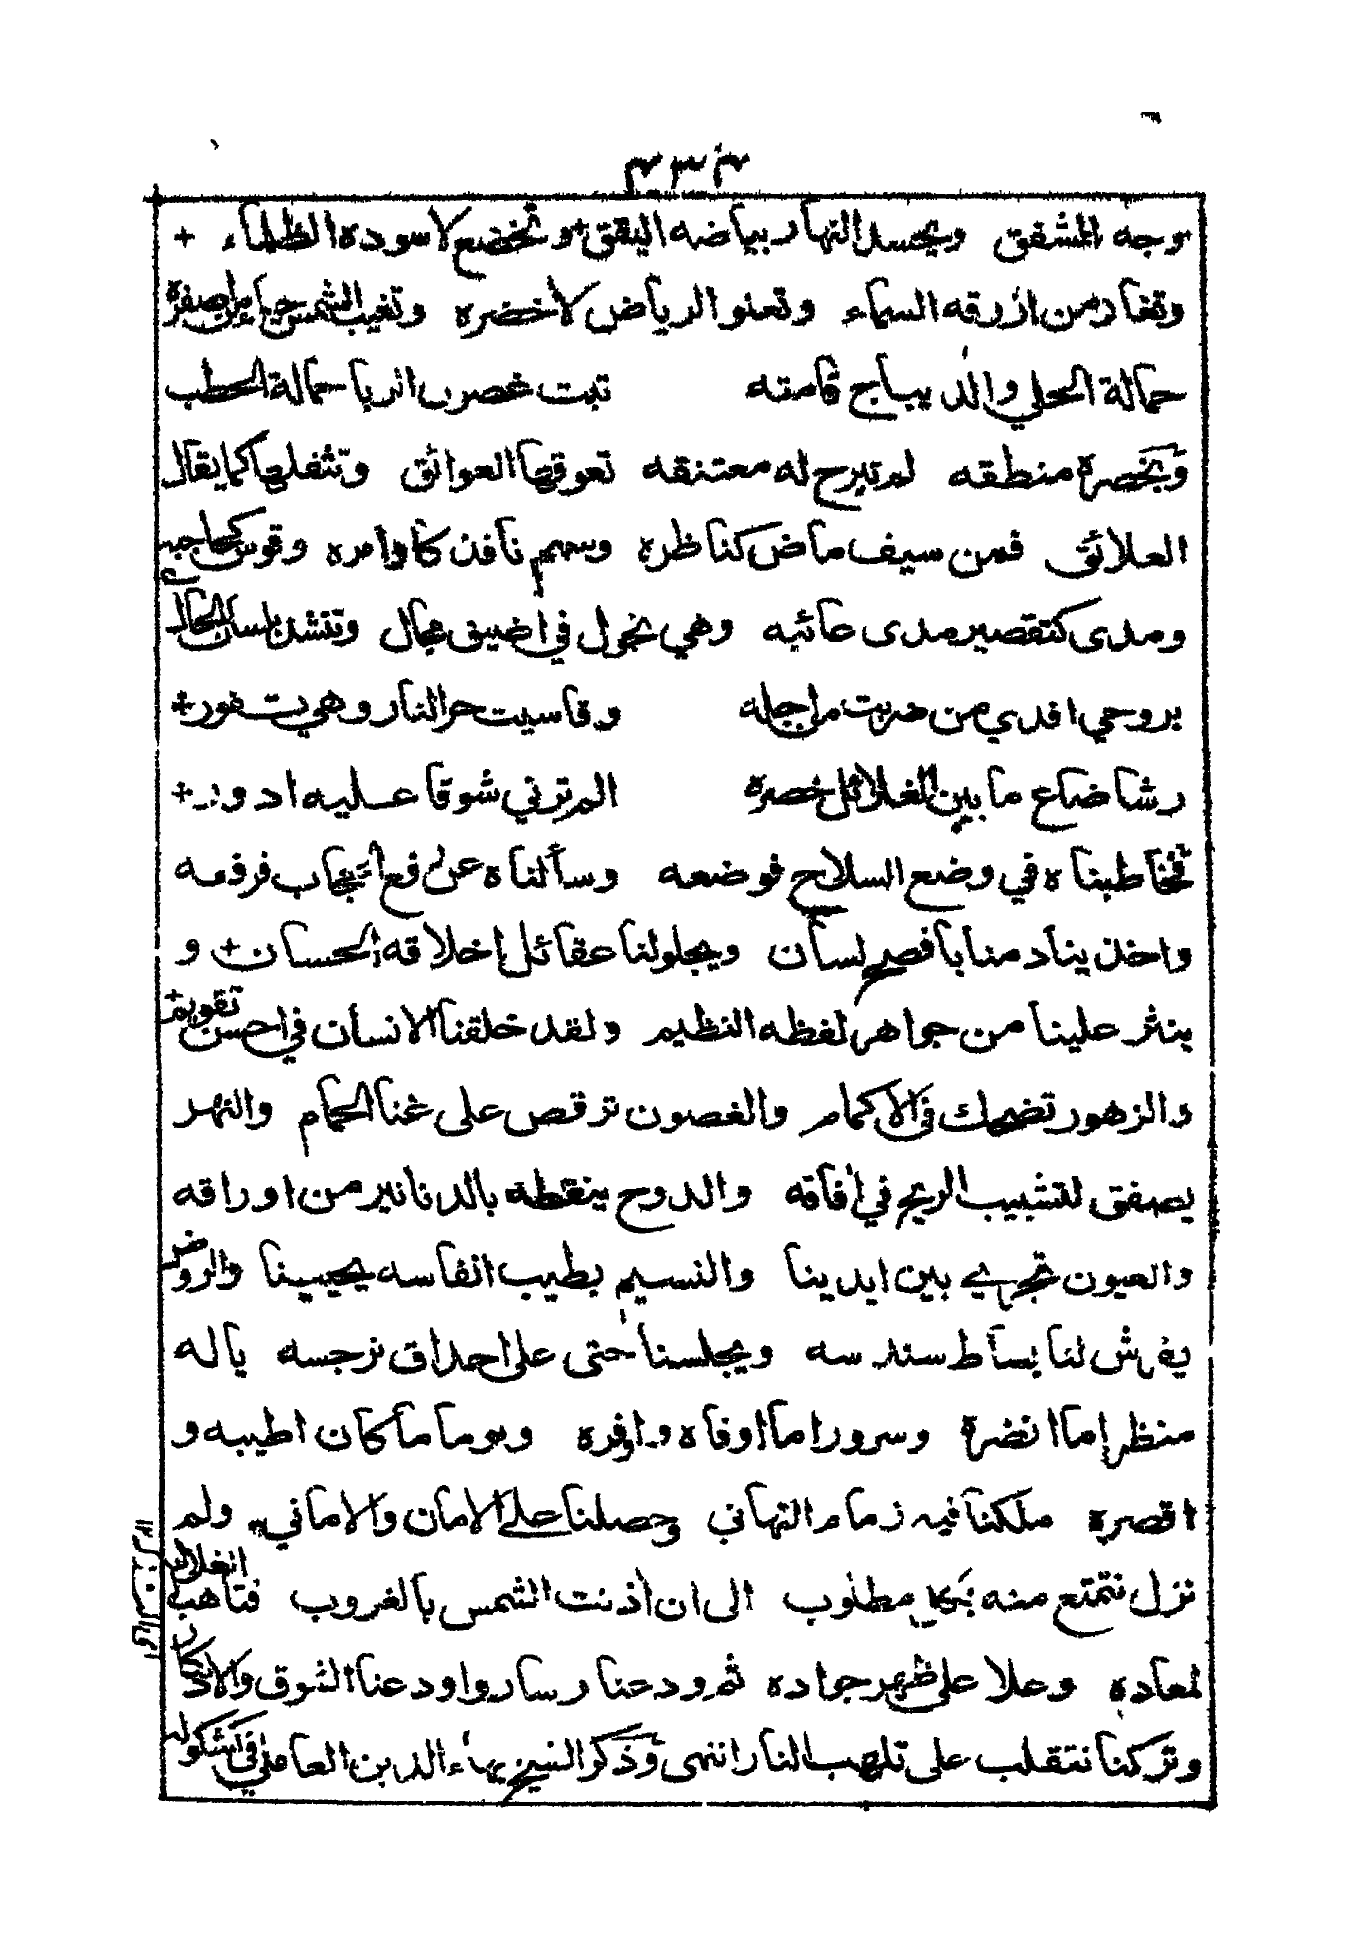 ٣٣٣
وجه المشفق ويحسد النهار بياضه اليقق + وتخضع لاسوده الظلماء +
وتغار من ازرقه السماء وتعنو الرياض لاخضره وتغيب الشمس حياء من اصفره
حمالة الحلي والديباج قامته تبت غصون الربا حمالة الحطب
وبخصره منطقه لم تبرح له معتنقه تعوقها العوائق وتثقلها كما يقال
العلائق فمن سيف ماض كناظره وسهم نافذ كاوامره وقوس كحاجبه
ومدى كتقصير مدى عائبه وهي تجول في اضيق مجال وتنشد بلسان الحال
بروحي افدي من ضربت مراجله وقاسيت حر النار وهي تفور +
رشا ضاع ما بين الغلائل خصره الم ترني شوقا عليه ادور +
فخاطبناه في وضع السلاح فوضعه وسألناه عن رفع الحجاب فرفعه
واخذ ينادمنا بافصح لسان ويجلو لنا عقائل اخلاقه الحسان + و
ينثر علينا من جواهر لفظه النظيم ولقد خلقنا الانسان في احسن تقويم +
والزهور تضحك في الاكمام والغصون ترقص على غنا الحمام والنهر
يصفق لتشبيب الريح في افاقه والدوح ينقطه بالدنانير من اوراقه
والعيون تجري بين ايدينا والنسيم بطيب انفاسه يحيينا والروض
يفرش لنا بساط سندسه ويجلسنا حتى على احداق نرجسه ياله
منظر اما انضره وسرورا ما اوفاه وافره ويوما ما كان اطيبه و
اقصره ملكنا فيه زمام التهاني وحصلنا على الامان والاماني ولم
نزل نتمتع منه بكل مطلوب الى ان اذنت الشمس بالغروب فتاهب
لمعاده وعلا على ظهر جواده ثم ودعنا وسار واودعنا الشوق والاذكار
وتركنا نتقلب على تلهب النار انتهى وذكر الشيخ بهاء الدين العاملي في كشكوله